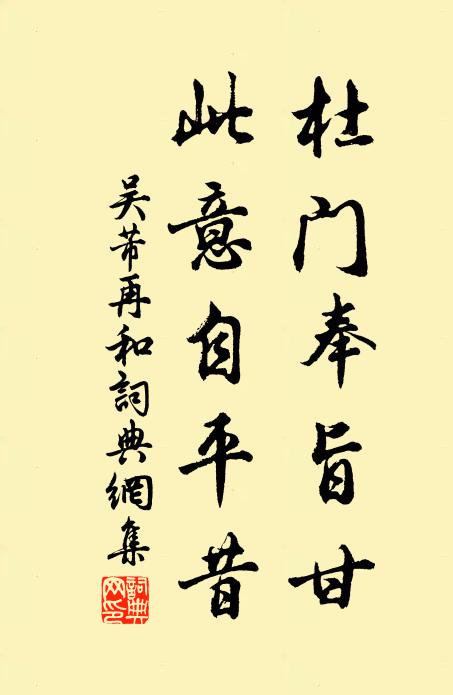 杜门奉旨甘
此意自平昔
吴芾再和詞典網集
詞典网印